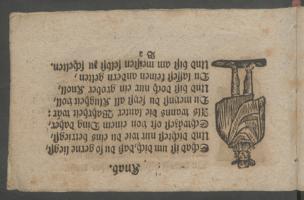 Knab.
Schad ist um dich, daß du so gerne liegst,
Und dich nur wo du eins betriegst,
Schwätzest oft von einem Ding daher,
Als wanns die lauter Wahrheit wär:
Du meinst du seyst all Klugheit voll,
Und bist doch nur ein grober Knoll,
Du lassest keinen andern gelten,
Und bist am meisten selbst zu schelten.
B 2